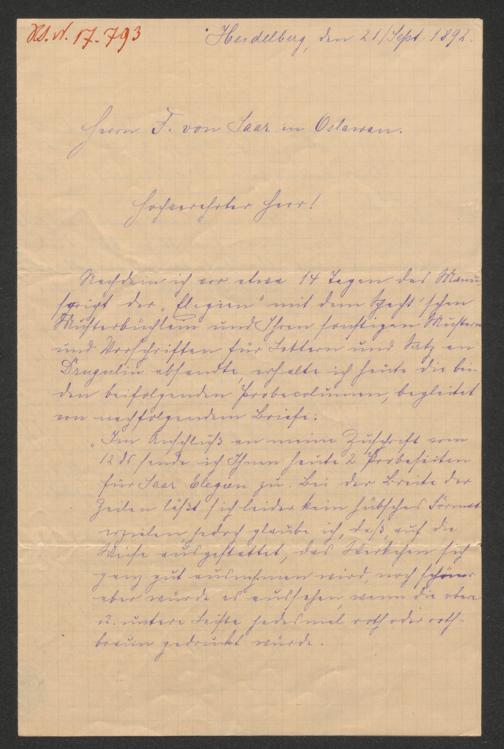 H.I.N. 17.793
Heidelberg, den 21/Sept. 1892.
Herrn F. von Saar in Oslawan.
Hochverehrter Herr!
Nachdem ich vor etwa 14 Tagen das Manu-
script der „Elegien“ mit dem Hecht'schen
Musterbüchlein und Ihren sonstigen Mustern
und Vorschriften für Lettern und Satz an
Drugulin absandte, erhalte ich heute die bei-
den beifolgenden Probecolumnen, begleitet
von nachfolgendem Briefe:
„Im Anschluß an meine Zuschrift vom
12 ds sende ich Ihnen heute 2 Probeseiten
für Saar Elegien zu. Bei der Breite der
Zeilen läßt sich leider kein hübsches Format
erzielen, jedoch glaube ich, daß, auf die
Weise ausgestattet, das Werkchen sich
ganz gut ausnehmen wird, noch schöner
aber würde es aussehen, wenn die obere
u. untere Leiste jedesmal roth oder roth-
braun gedruckt würde.